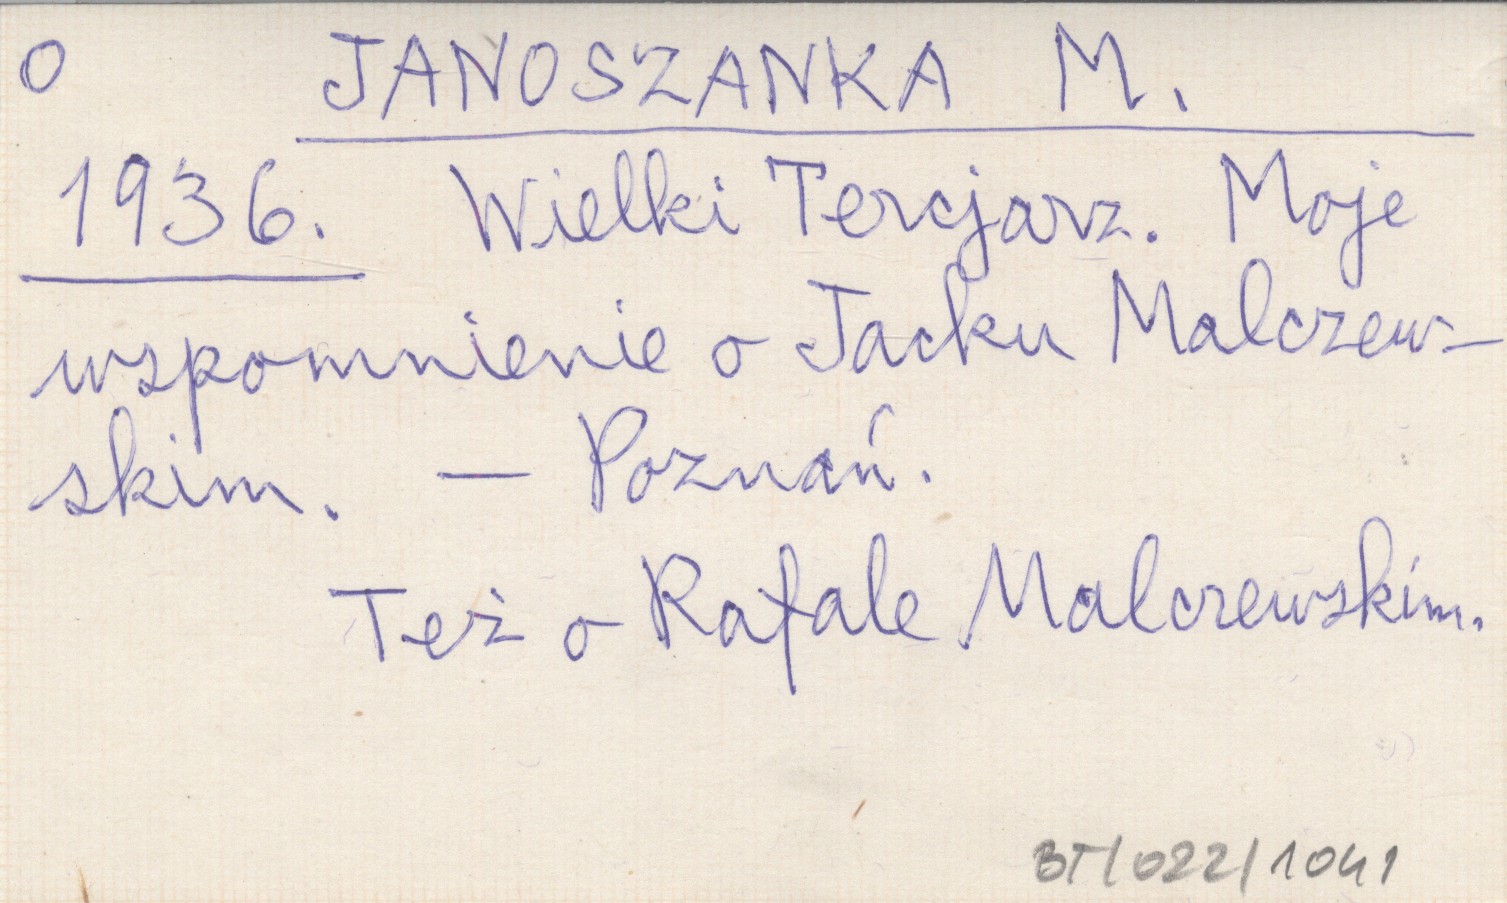 O JANOSZANKA M.
1936. Wielki Tercjarz. Moje
wspomnienie o Jacku Malczew-
skim. — Poznań.
Też o Rafale Malczewskim.
BT/022/1041